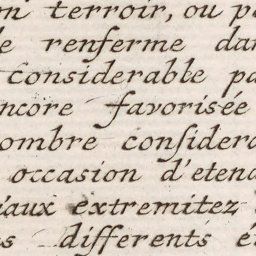 n terroir, ou p
e renferme dan
considerable pa
ncore favorisée
ombre considera
occasion d'etend
iaux extremitez
s differents é